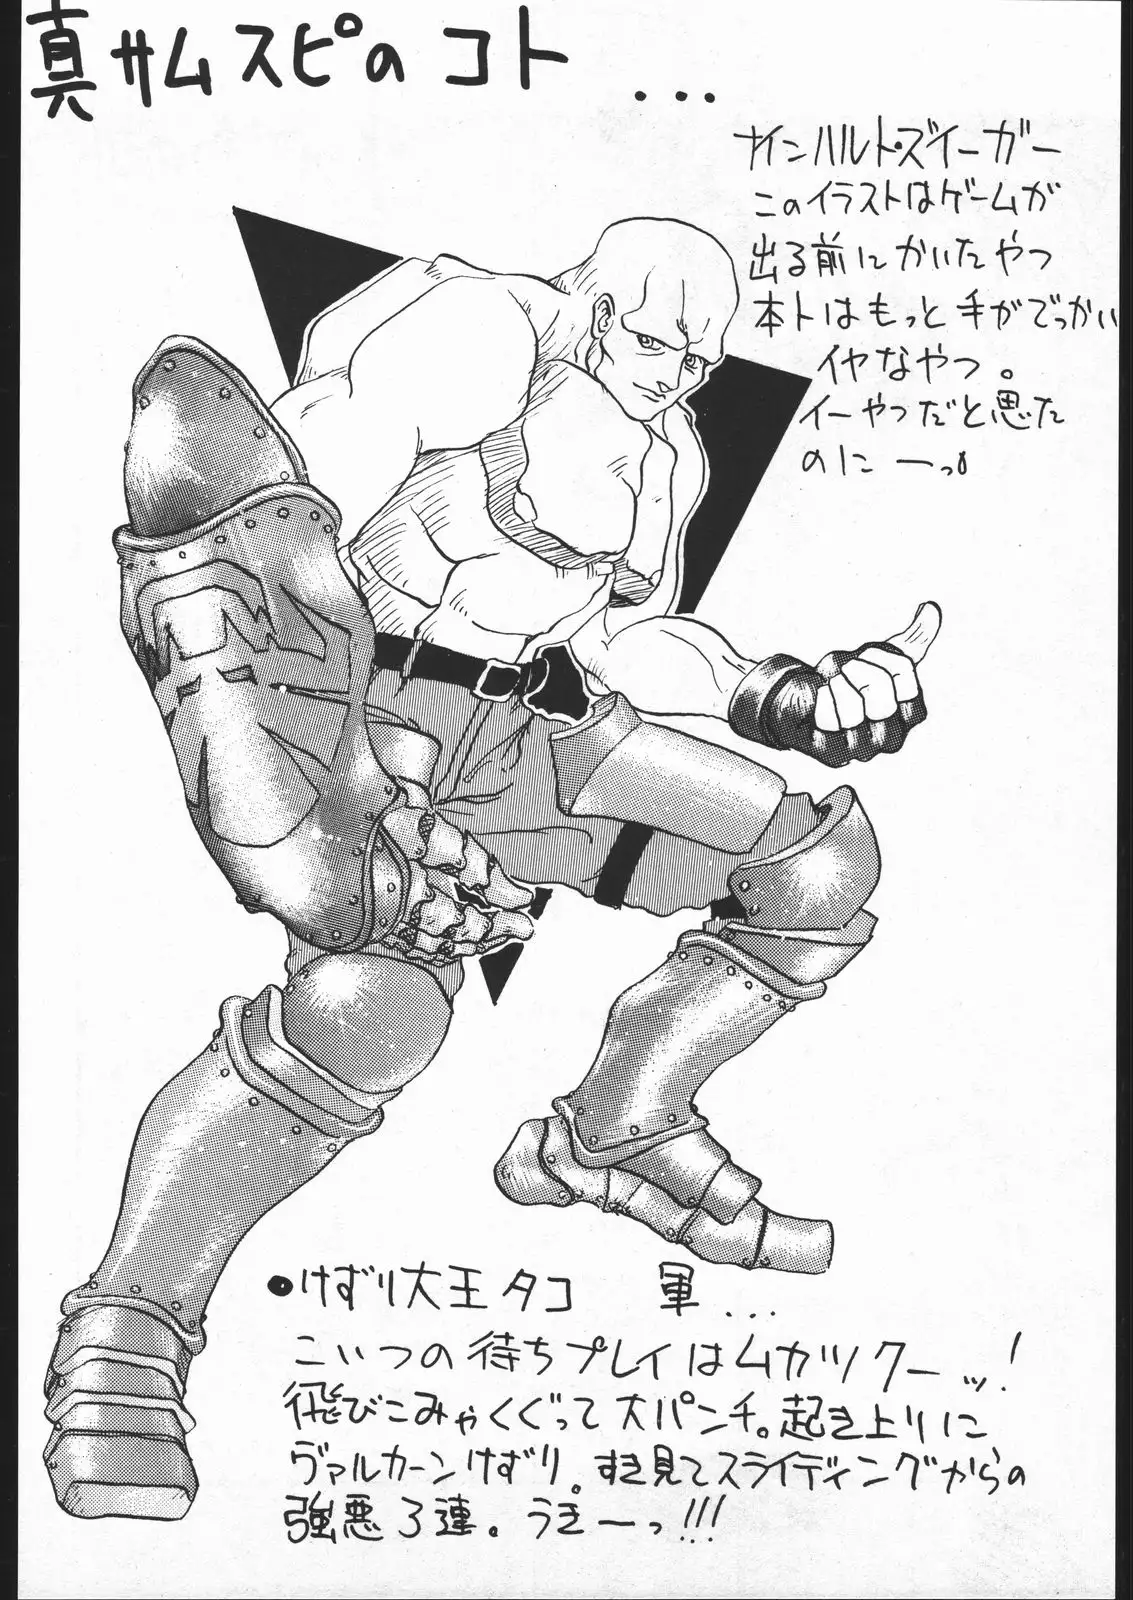 真サムスピのコト
...
ナインハルト・ズィーガー
このイラストはゲームが
出る前にかいたやつ
本トはもっと手がでっかい
イヤなやつ。
イーやつだと思た
のにーっ
●けずり大王タコ 軍...
こいつの待ちプレイはムカツクーッ!
飛びこみゃくぐって大パンチ。起き上りに
ヴァルカーンけずり。すき見てスライディングからの
強悪3連。うきーっ!!!